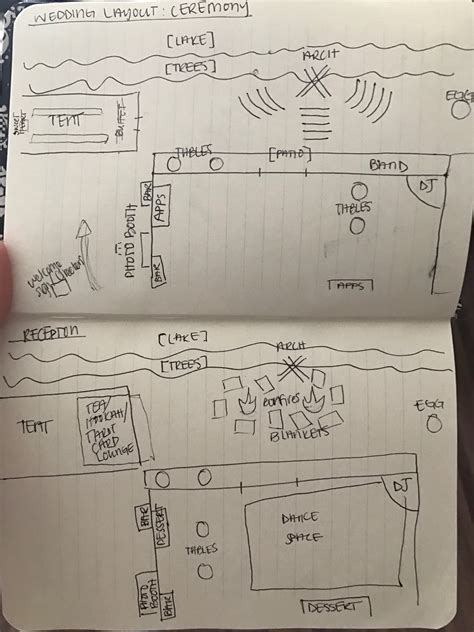 WEDDING LAYOUT: CEREMONY
[LAKE]
ARCH
[TREES]
EGG
TENT
BUFFET
TABLES
[PATIO]
BAND
DJ
BAR
APPS
PHOTO BOOTH
TABLES
BAR
welcome
sign
direction
APPS
RECEPTION
[LAKE]
ARCH
[TREES]
EGG
TENT
TEA/
HOOKAH/
TAROT
CARD
LOUNGE
BONFIRES
BLANKETS
DJ
BAR
DESSERT
TABLES
DANCE
SPACE
PHOTO
BOOTH
BAR
DESSERT